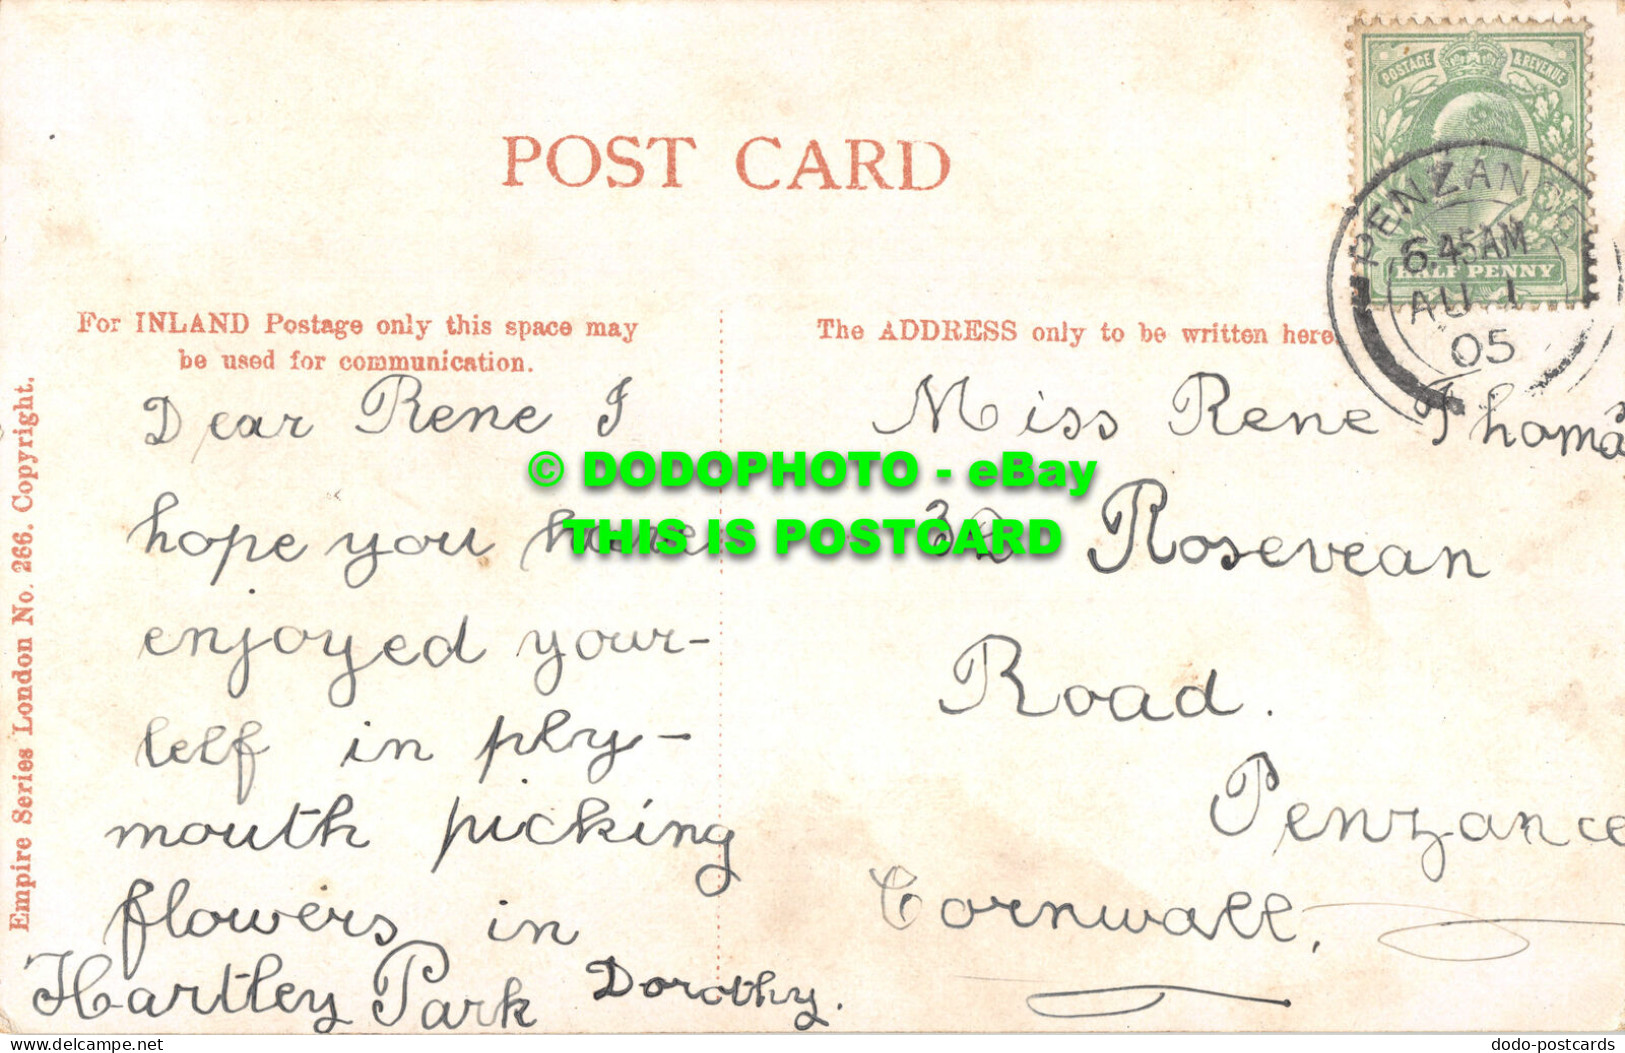 POST CARD
POSTAGE & REVENUE
HALF PENNY
PENZANCE
6.45AM
AU 1
05
For INLAND Postage only this space may
be used for communication.
The ADDRESS only to be written here
Dear Rene I
hope you have
enjoyed your-
self in ply-
mouth picking
flowers in
Hartley Park Dorothy.
Miss Rene Thomas
32 Rosevean
Road.
Penzance
Cornwall,
Empire Series London No. 266. Copyright.
© DODOPHOTO - eBay
THIS IS POSTCARD
www.delcampe.net
dodo-postcards